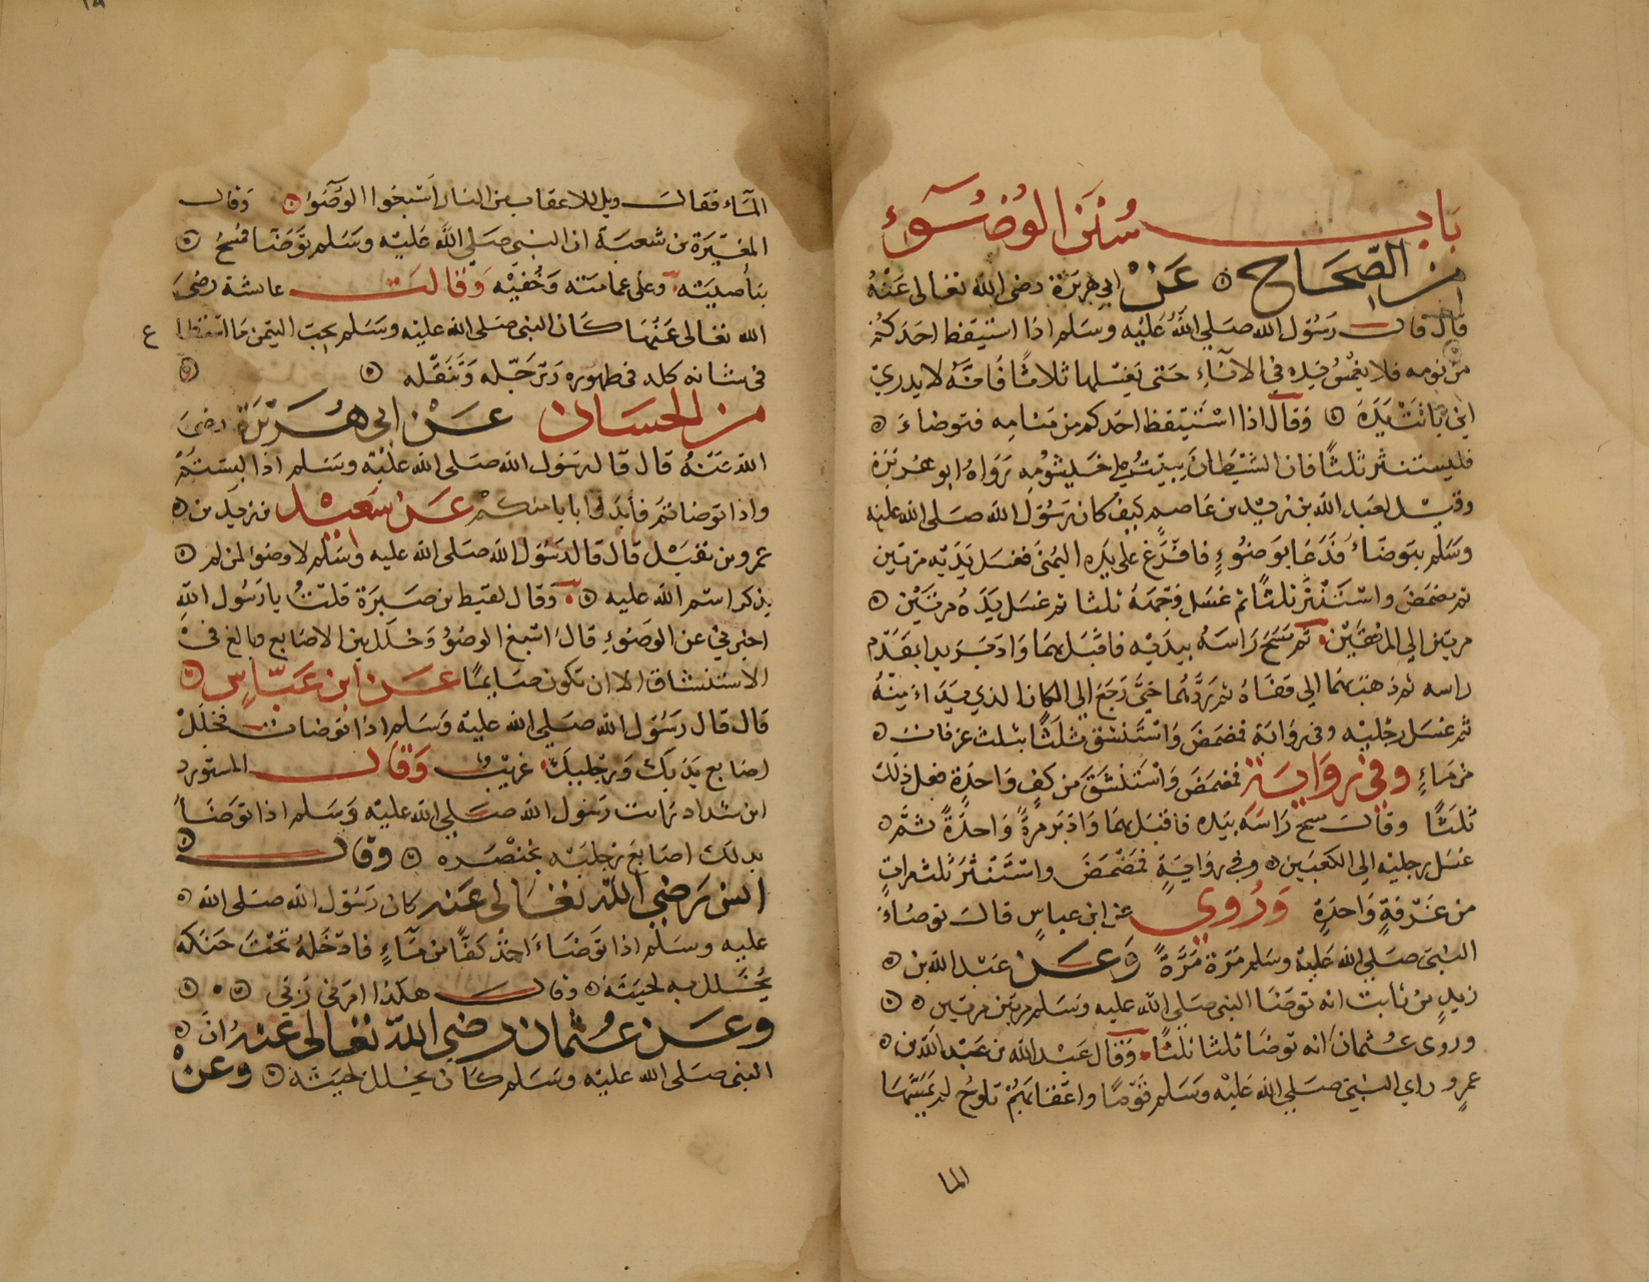 باب سنن الوضوء
من الصحاح عن ابي هريرة رضى الله تعالى عنه
قال قال رسول الله صلي الله عليه وسلم اذا استيقظ احدكم
من نومه فلا يغمس يده في الاناء حتى يغسلها ثلاثا فانه لا يدري
اين باتت يده وقال اذا استيقظ احدكم من منامه فتوضاء
فليستنثر ثلثا فان الشيطان يبيت على خيشومه رواه ابو هريرة
وقيل لعبد الله بن زيد بن عاصم كيف كان رسول الله صلى الله عليه
وسلم يتوضاء فدعا بوضوء فافرغ على يده اليمنى فغسل يديه مرتين
ثم مضمض واستنثر ثلثا ثم غسل وجهه ثلثا ثم غسل يده مرتين
مرتين الى المرفقين ثم مسح راسه بيديه فاقبل بهما وادبر بدا بمقدم
راسه ثم ذهب بهما الى قفاه ثم ردهما حتى رجع الى المكان الذي بداء منه
ثم غسل رجليه وفى رواية فمضمض واستنشق ثلثا بثلث غرفات
من ماء وفى رواية فمضمض واستنشق من كف واحدة فعل ذلك
ثلثا وقال مسح راسه بيده فاقبل بهما وادبر مرة واحدة ثم
غسل رجليه الى الكعبين وفى رواية فمضمض واستنثر ثلث مرات
من غرفة واحدة وروي عن ابن عباس قال توضاء
النبى صلي الله عليه وسلم مرة مرة وعن عبد الله بن
زيد بن ثابت انه توضا النبى صلى الله عليه وسلم مرتين مرتين
وروى عثمان انه توضا ثلثا ثلثا وقال عبد الله بن عبد الله بن
عمرو راي النبى صلي الله عليه وسلم قوما واعقابهم تلوح لم يمسها
الما
الماء فقال ويل للاعقاب من النار اسبغوا الوضوء وقال
المغيرة بن شعبة ان النبى صلى الله عليه وسلم توضا فمسح
بناصيته وعلى عمامته وخفيه وقالت عائشة رضى
الله تعالى عنها كان النبى صلى الله عليه وسلم يحب التيمن ما استطاع
فى شانه كله فى طهوره وترجله وتنعله
من الحسان عن ابى هريرة رضى
الله عنه قال قال رسول الله صلى الله عليه وسلم اذا لبستم
واذا توضاتم فابدؤا بايامنكم عن سعيد بن زيد بن
عمرو بن نفيل قال قال رسول الله صلى الله عليه وسلم لا وضوء لمن لم
يذكر اسم الله عليه وقال لقيط بن صبرة قلت يا رسول الله
اخبرني عن الوضوء قال اسبغ الوضوء وخلل بين الاصابع وبالغ في
الاستنشاق الا ان تكون صايما عن ابن عباس
قال قال رسول الله صلى الله عليه وسلم اذا توضات فخلل
اصابع يديك ورجليك غريب وقال المستورد
ابن شداد رايت رسول الله صلي الله عليه وسلم اذا توضا
يدلك اصابع رجليه بخنصره وقال
انس رضي الله تعالى عنه كان رسول الله صلى الله
عليه وسلم اذا توضاء اخذ كفا من ماء فادخله تحت حنكه
يخلل به لحيته وقال هكذا امرنى ربي
وعن عثمان رضى الله تعالى عنه ان
النبى صلى الله عليه وسلم كان يخلل لحيته وعن